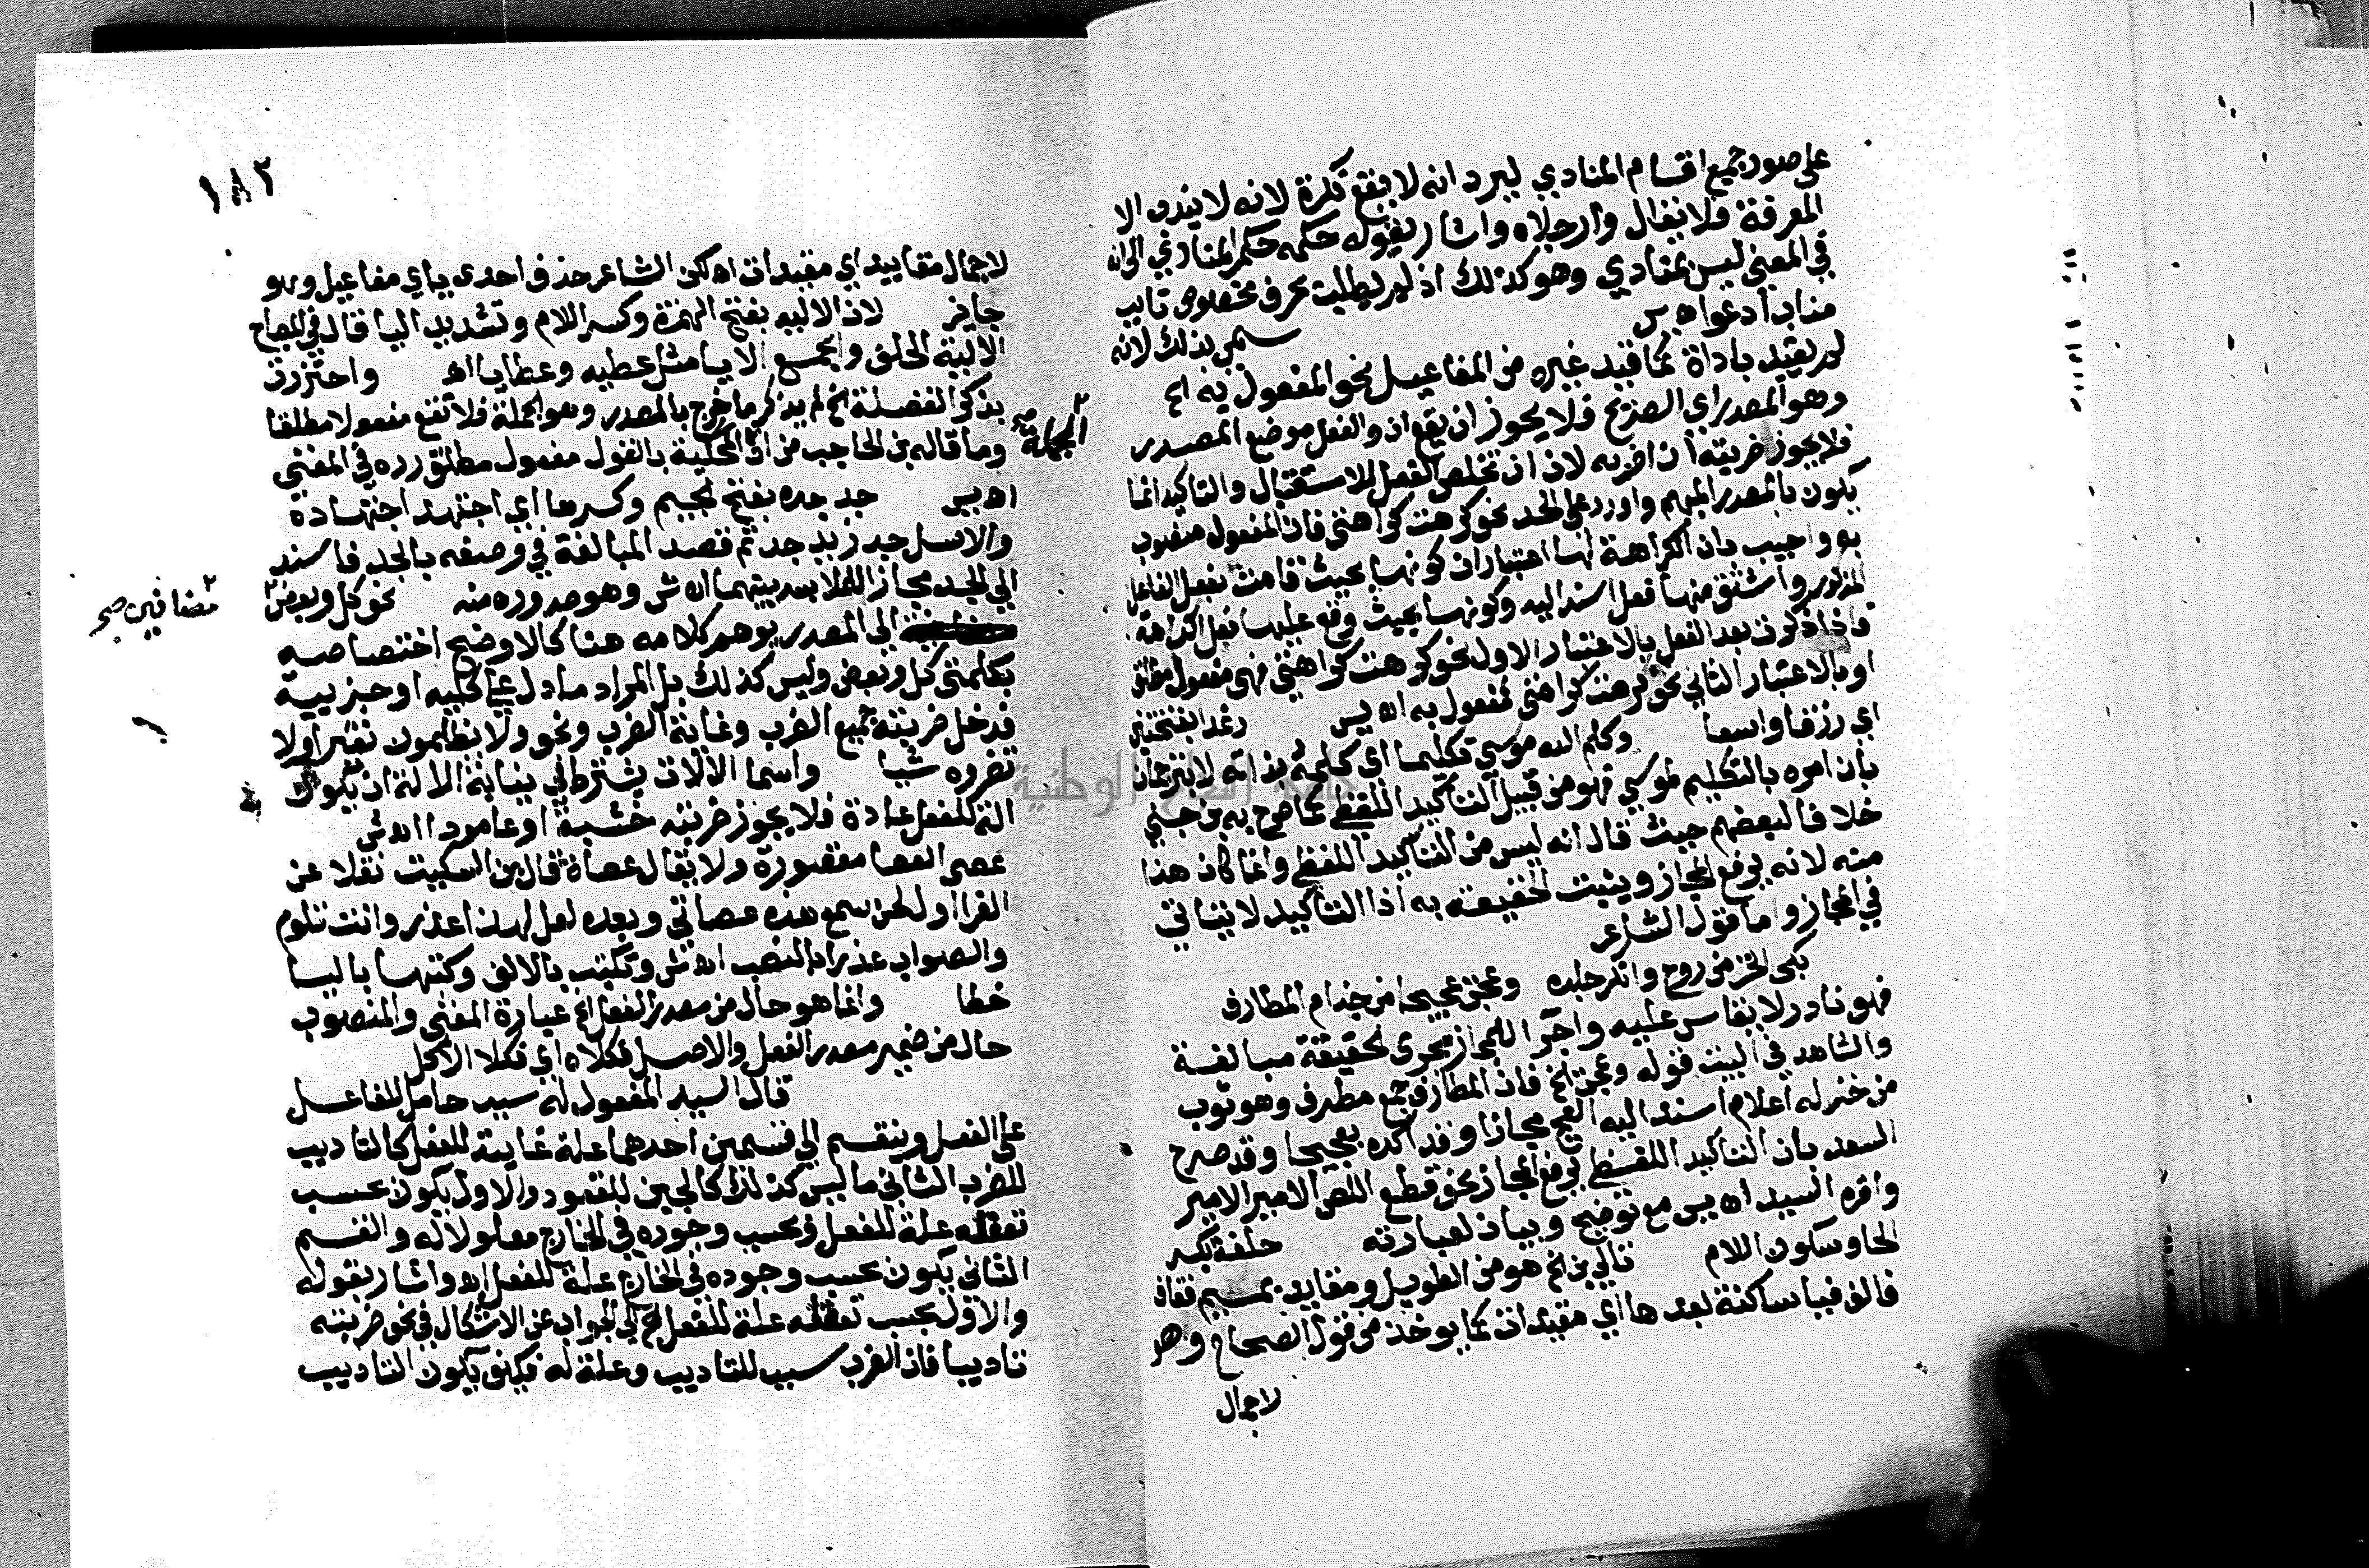 على صور جميع اقسام المنادي ليرد انه لا يقع نكرة لانه لا يندب الا
المعرفة فلا يقال وارجلاه واشار بقوله حكمه حكم المنادي الى انه
في المعنى ليس بمنادي وهو كذلك اذ لم يطلب بحرف مخصوص نايب
مناب ادعو اه يس سمي بذلك لانه
لم يقيد باداة كما قيد غيره من المفاعيل نحو المفعول به اه
وهو المصدر اي الصريح فلا يجوز ان يقع ان والفعل موضع المصدر
فلا يجوز ضربته ان اضربه لان ان تخلص الفعل للاستقبال والتاكيد انما
يكون بالمصدر المبهم واورد على الحد نحو كرهت كراهتي فان المفعول منصوب
به واجيب بان الكراهة لها اعتباران كونها بحيث قامت بفعل الفاعل
المذكور واشتق منها فعل اسند اليه وكونها بحيث وقع عليها فعل الكراهة
فاذا ذكرت بعد الفعل بالاعتبار الاول نحو كرهت كراهتي فهي مفعول مطلق
او بالاعتبار الثاني نحو كرهت كراهتي فمفعول به اه يس رغدا بفتحتين
اي رزقا واسعا وكلم الله موسى تكليما اي كلمه بذاته لا بترجمان
بان امره بالتكليم لموسي فهو من قبيل التأكيد اللفظي كما صرح به بن جني
خلافا لبعضهم حيث قال انه ليس من التأكيد اللفظي وانما كان هذا
منه لانه يرفع المجاز ويثبت الحقيقة به اذا التأكيد لا يتاتي
في المجاز واما قول الشاعر
بكى الخز من روح وانكر جلده وعجت عجيجا من جذام المطارف
فهو نادر لا يقاس عليه واجرا المجاز مجرى الحقيقة مبالغة
والشاهد في البيت قوله وعجت الخ فان المطارف جمع مطرف وهو ثوب
من خز له اعلام اسند اليه العج مجازا وقد اكده بعجيجا وقد صرح
السعد بان التأكيد اللفظي يرفع المجاز نحو قطع اللص الامير الامير
واقره السيد اه يس مع توضيح وبيان لعبارته حلفة بكسر
الحا وسكون اللام تالي بن الخ هو من الطويل ومفايد بميم فقاف
فالف فيا ساكنة بعدها اي مقيدات كما يوخذ من قول الصحاح وهو
لاجمال
١٨٢
لاجمال مقاييد اي مقيدات اه لكن الشاعر حذف احدى ياي مفاعيل وهو
جايز لان الاليه بفتح الهمزة وكسر اللام وتشديد اليا قال في الصحاح
الالية الحلف والجمع الالايا مثل عطيه وعطايا اه واحترزت
بذكر الفضلة الخ لم يذكر ما خرج بالمصدر وهو الجملة فلا تقع مفعولا مطلقا
وما قاله بن الحاجب من ان المحكية بالقول مفعول مطلق رده في المغني
الجملة صح
اه يس جد جده بفتح الجيم وكسرها اي اجتهد اجتهاده
والاصل جد زيد جد ثم قصد المبالغة في وصفه بالجد فاسند
الى الجد مجازا لملابسة بينهما اه ش وهو صدوره منه نحو كل وبعض
مضافين صح
الي المصدر يوهم كلامه هنا كالاوضح اختصاصه
بكلمتي كل وبعض وليس كذلك بل المراد ما دل على كليه او جزيية
فدخل ضربته جميع الضرب وغاية الضرب ونحو ولا يظلمون نقيرا ولا
تضروه شيا واسما الآلات يشترط في نيابة الآلة ان تكون
آلة للفعل عادة فلا يجوز ضربته خشبة او عامودا اه ش
عصى العصا مقصورة ولا يقال عصاة قال بن السكيت نقلا عن
الفرا اول لحن سمع هذه عصاتي وبعده لعل لهذا عذر وانت تلوم
والصواب عذرا بالنصب اه ش وتكتب بالالف وكتبها باليا
خطا وانما هو حال من مصدر الفعل الخ عبارة المغني والمنصوب
حال من ضمير مصدر الفعل والاصل فكلاه اي فكلا الاكل
قال السيد المفعول له سبب حامل للفاعل
على الفعل وينقسم الي قسمين احدهما علة غاية للفعل كالتاديب
للضرب الثاني ما ليس كذلك كالجبن للقعود والاول يكون بحسب
تعقله علة للفعل وبحسب وجوده في الخارج معلولا له والقسم
الثاني يكون بحسب وجوده في الخارج علة للفعل اه واشار بقوله
والاول بحسب تعقله علة للفعل الخ الي الجواب عن الاشكال في نحو ضربته
تاديبا فان الضرب سبب للتاديب وعلة له فكيف يكون التاديب